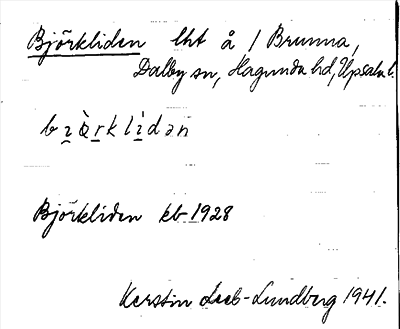 Björkliden lht å / Brunna,
Dalby sn, Hagunda hd, Upsala l.
bi̯ö̀rklìdən
Björkliden kb 1928
Kerstin Leeb-Lundberg 1941.